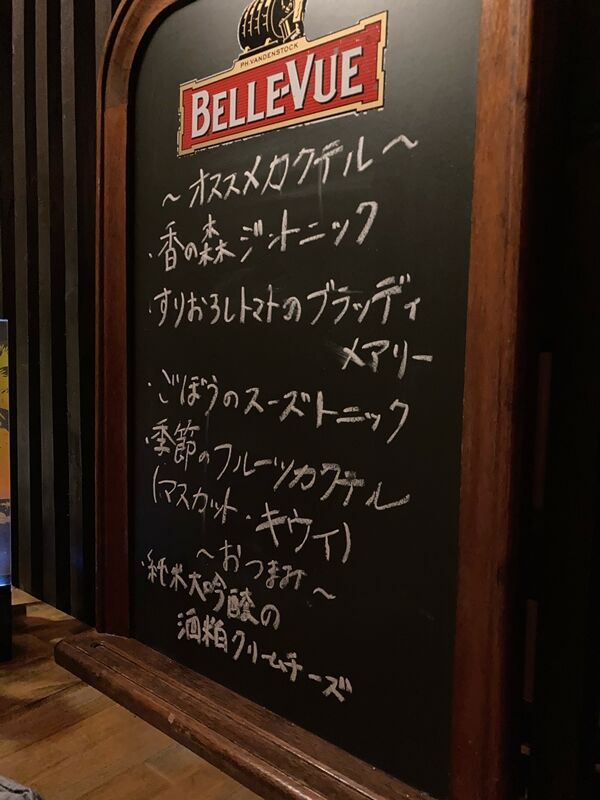 PH.VANDENSTOCK
BELLE-VUE
～オススメカクテル～
・香の森ジントニック
・すりおろしトマトのブラッディ
メアリー
・ごぼうのスーズトニック
・季節のフルーツカクテル
(マスカット・キウイ)
～おつまみ～
・純米大吟醸の
酒粕クリームチーズ